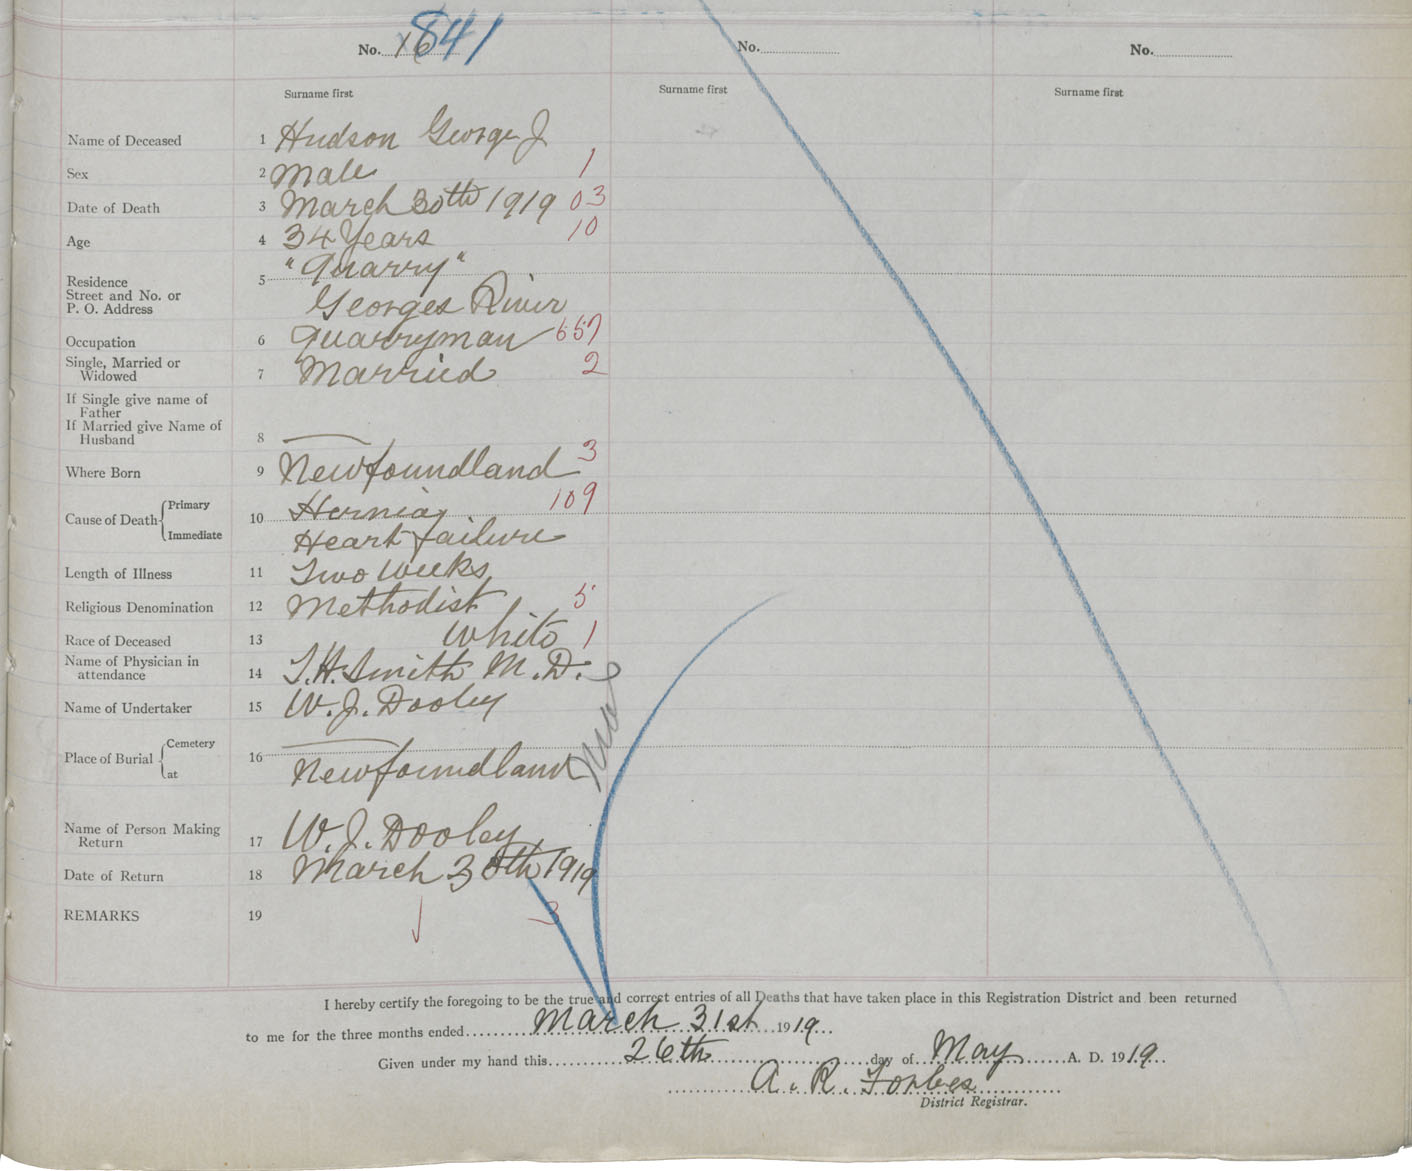 No. 16 841
No.
No.
Surname first
Surname first
Surname first
Name of Deceased 1 Hudson George J
Sex 2 Male 1
Date of Death 3 March 30th 1919 03
Age 4 34 Years 10
Residence
Street and No. or
P. O. Address
5 "Quarry"
Georges River
Occupation 6 Quarryman 657
Single, Married or
Widowed
7 Married 2
If Single give name of
Father
If Married give Name of
Husband
8 —
Where Born 9 Newfoundland 3
Cause of Death { Primary
Immediate
10 Hernia 109
Heart failure
Length of Illness 11 Two weeks
Religious Denomination 12 Methodist 5
Race of Deceased 13 White 1
Name of Physician in
attendance
14 T.H. Smith M.D.
Name of Undertaker 15 W. J. Dooley
Place of Burial { Cemetery
at
16 —
Newfoundland
Name of Person Making
Return
17 W. J. Dooley
Date of Return 18 March 30th 1919
REMARKS 19
3
I hereby certify the foregoing to be the true and correct entries of all Deaths that have taken place in this Registration District and been returned
to me for the three months ended March 31st 1919
Given under my hand this 26th day of May A. D. 1919
A. R. Forbes
District Registrar.